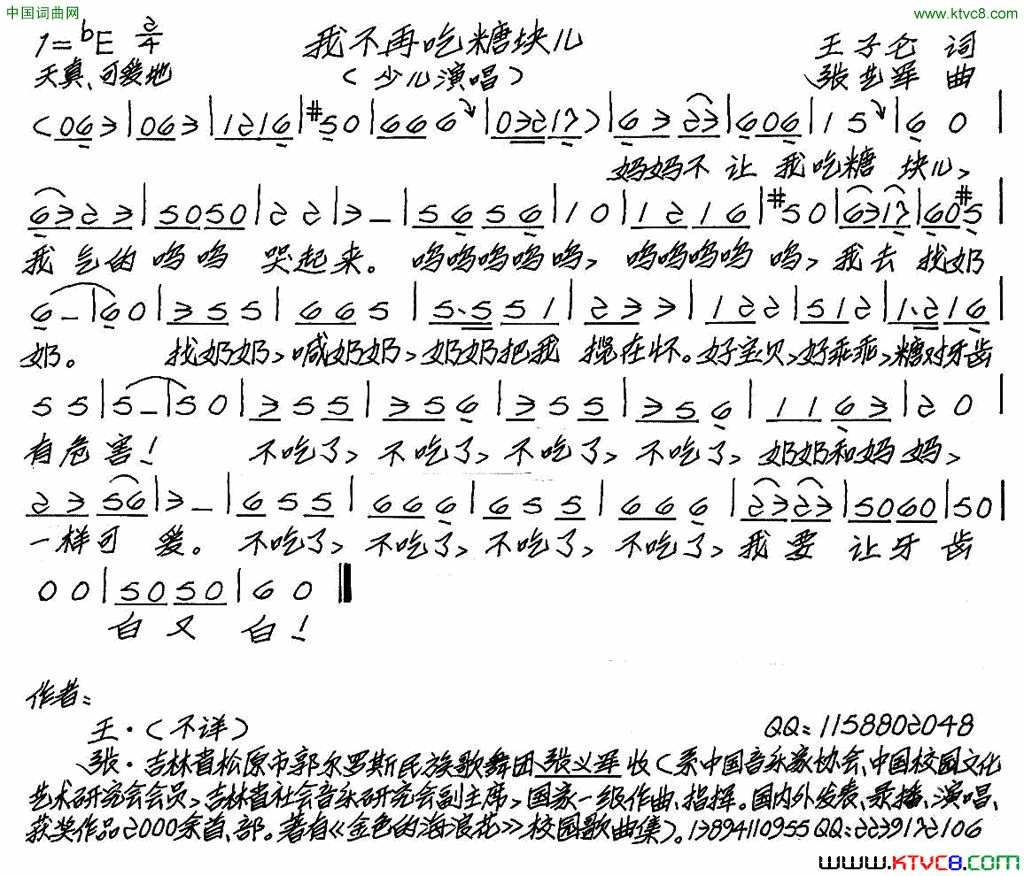 中国词曲网 www.ktvc8.com
1=bE 2/4 我不再吃糖块儿 王子仑 词
天真、可爱地 (少儿演唱) 张艺军 曲
(06 3|06 3|1216|#50|666|03217)|63 23|606|1 5|6 0|
妈妈不让 我吃糖 块儿,
6323|5050|22|3–|5656|10|1216|#50|6317|60#5|
我气的呜呜 哭起来。呜呜呜呜呜, 呜呜呜呜 呜, 我去 找奶
6–|60|355|665|5·551|233|122|512|1·216|
奶。 找奶奶,喊奶奶,奶奶把我 揽在怀。好宝贝,好乖乖,糖对牙齿
55|5–|50|355|356|355|356|1163|20|
有危害! 不吃了, 不吃了, 不吃了, 不吃了, 奶奶和妈妈,
2356|3–|655|666|655|666|2323|5060|50|
一样可 爱。 不吃了, 不吃了, 不吃了, 不吃了, 我要 让牙 齿
00|5050|60‖
白又 白!
作者:
王·(不详) QQ:1158802048
张·吉林省松原市郭尔罗斯民族歌舞团张义军收(系中国音乐家协会、中国校园文化
艺术研究会会员,吉林省社会音乐研究会副主席,国家一级作曲、指挥。国内外发表、录播、演唱、
获奖作品2000余首、部。著有《金色的海浪花》校园歌曲集)。13894110955 QQ:2239172106
www.KTVC8.com